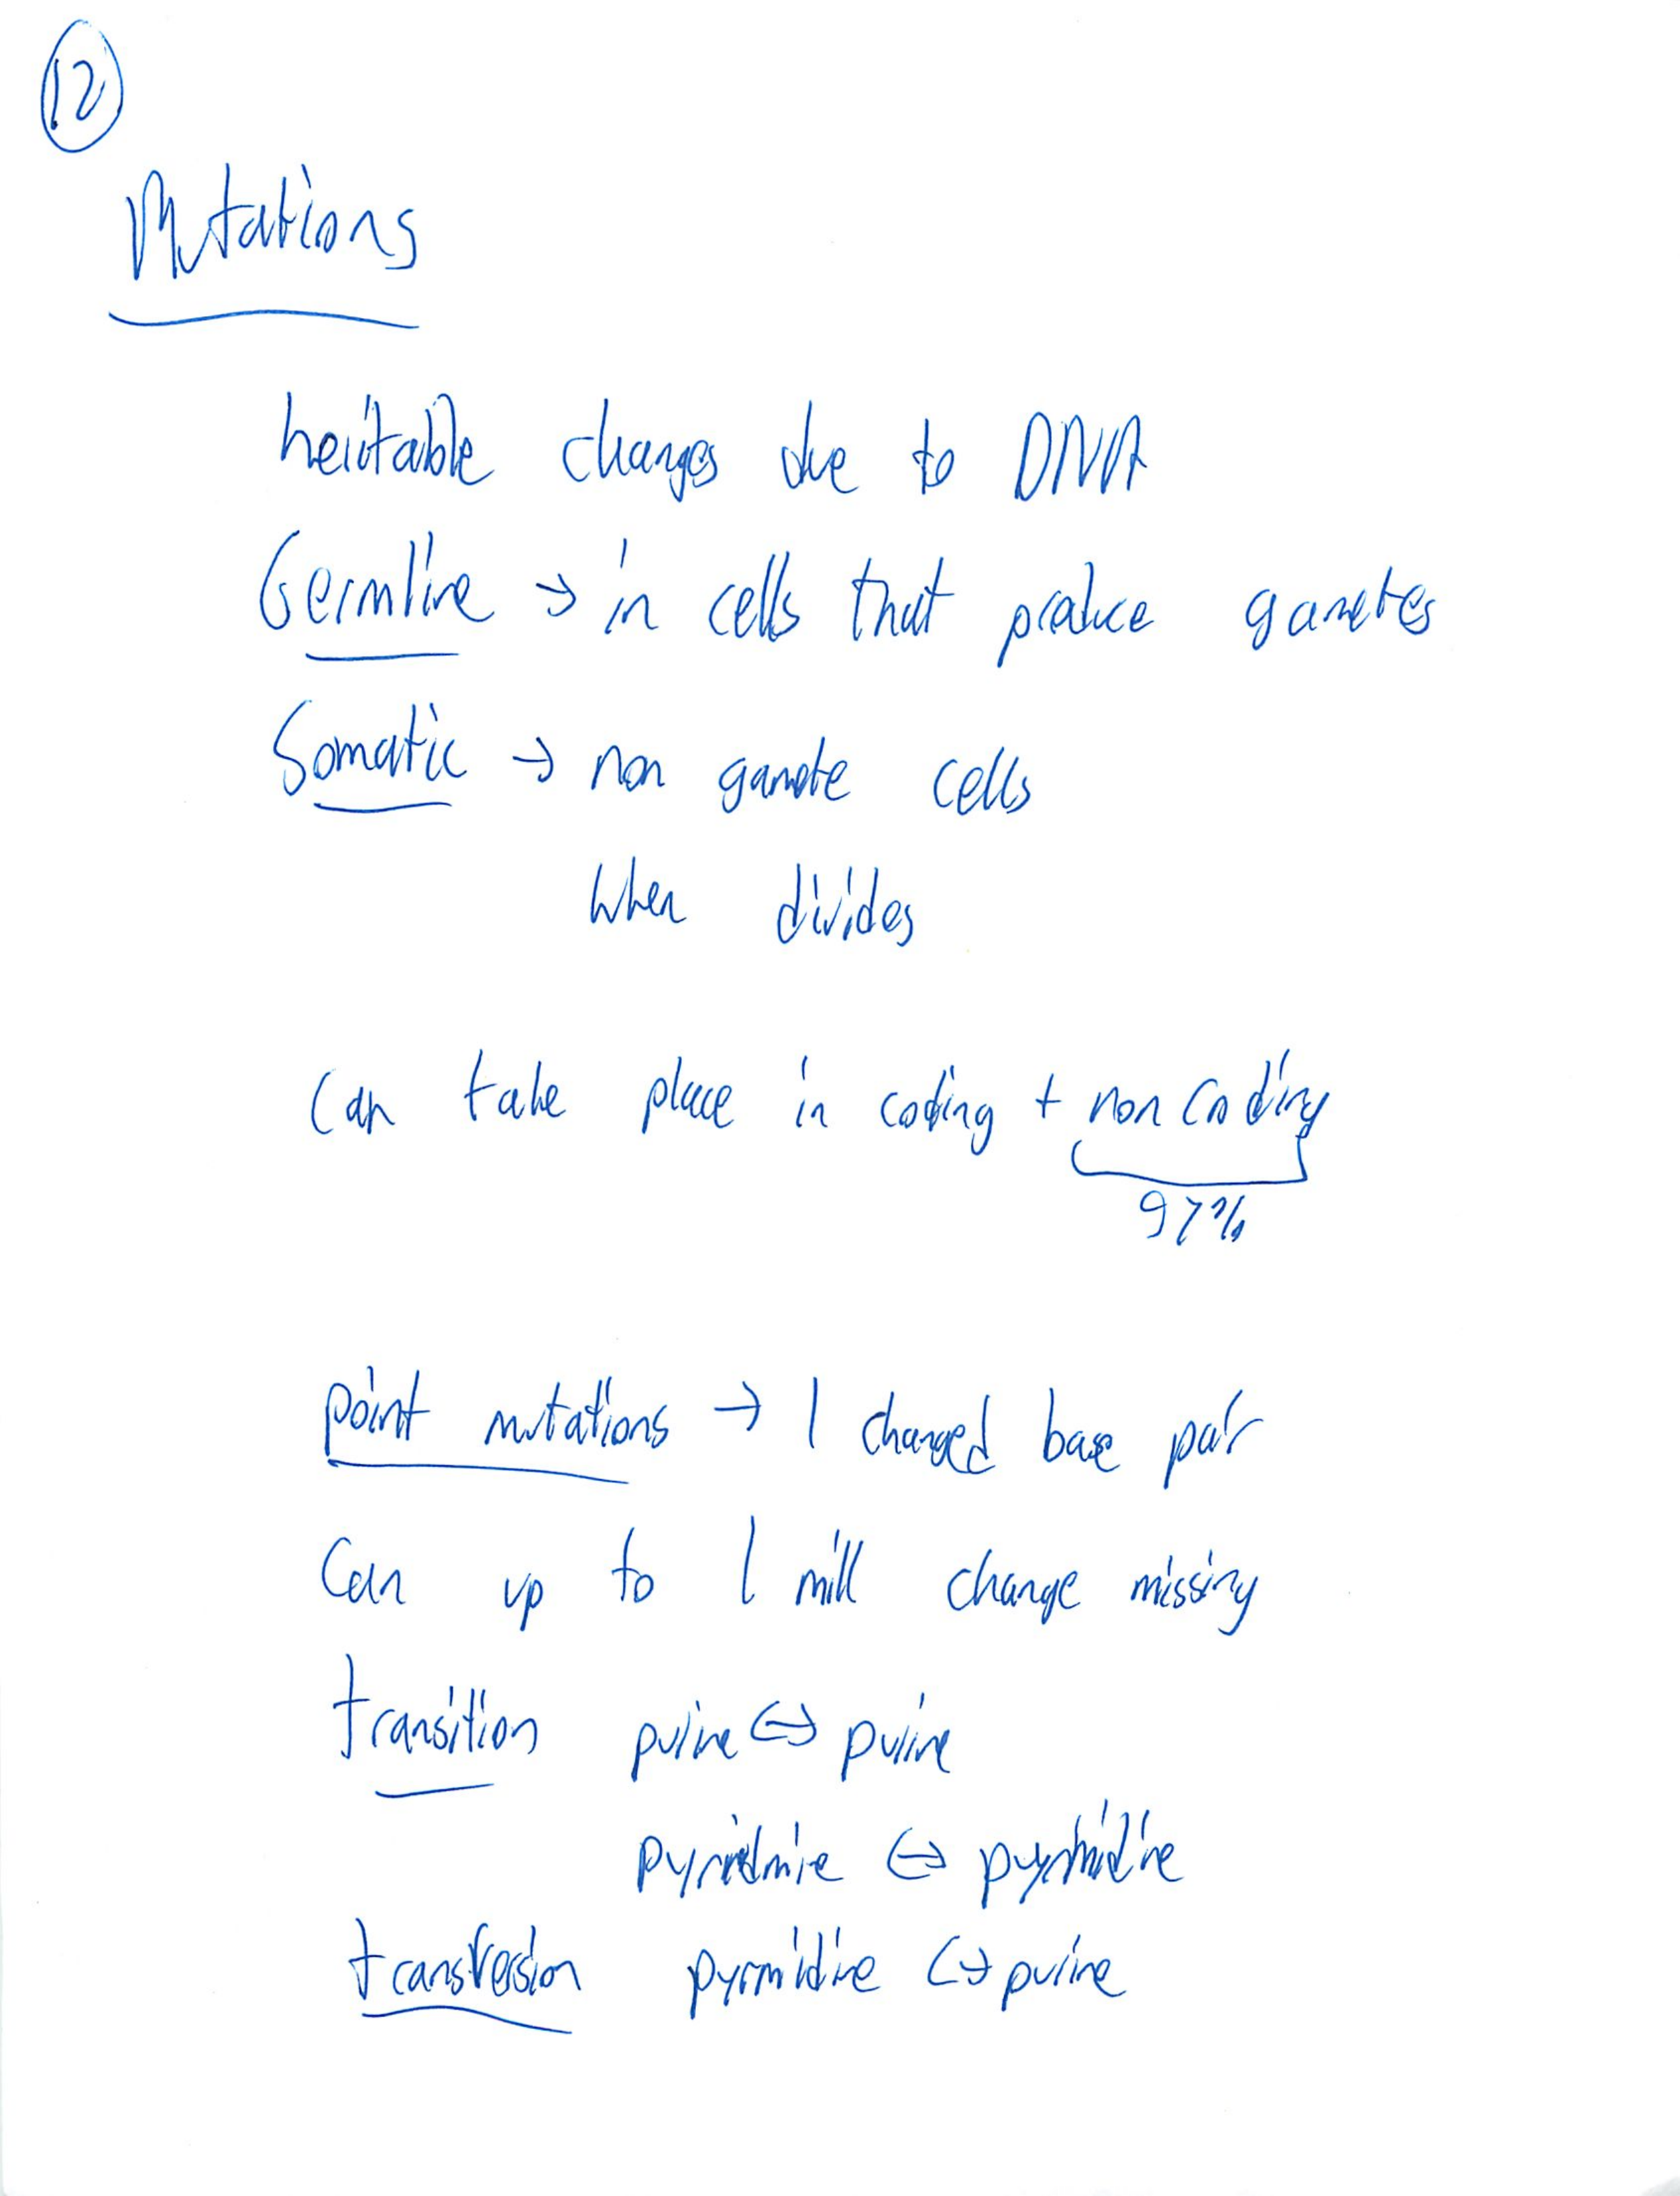 12
Mutations
heritable changes due to DNA
Germline → in cells that produce gametes
Somatic → non gamete cells
when divides
Can take place in coding + non coding
97%
point mutations → 1 changed base pair
Can up to 1 mill change missing
transition purine ↔ purine
pyridmine ↔ pyrmidine
transversion pyrmidine ↔ purine